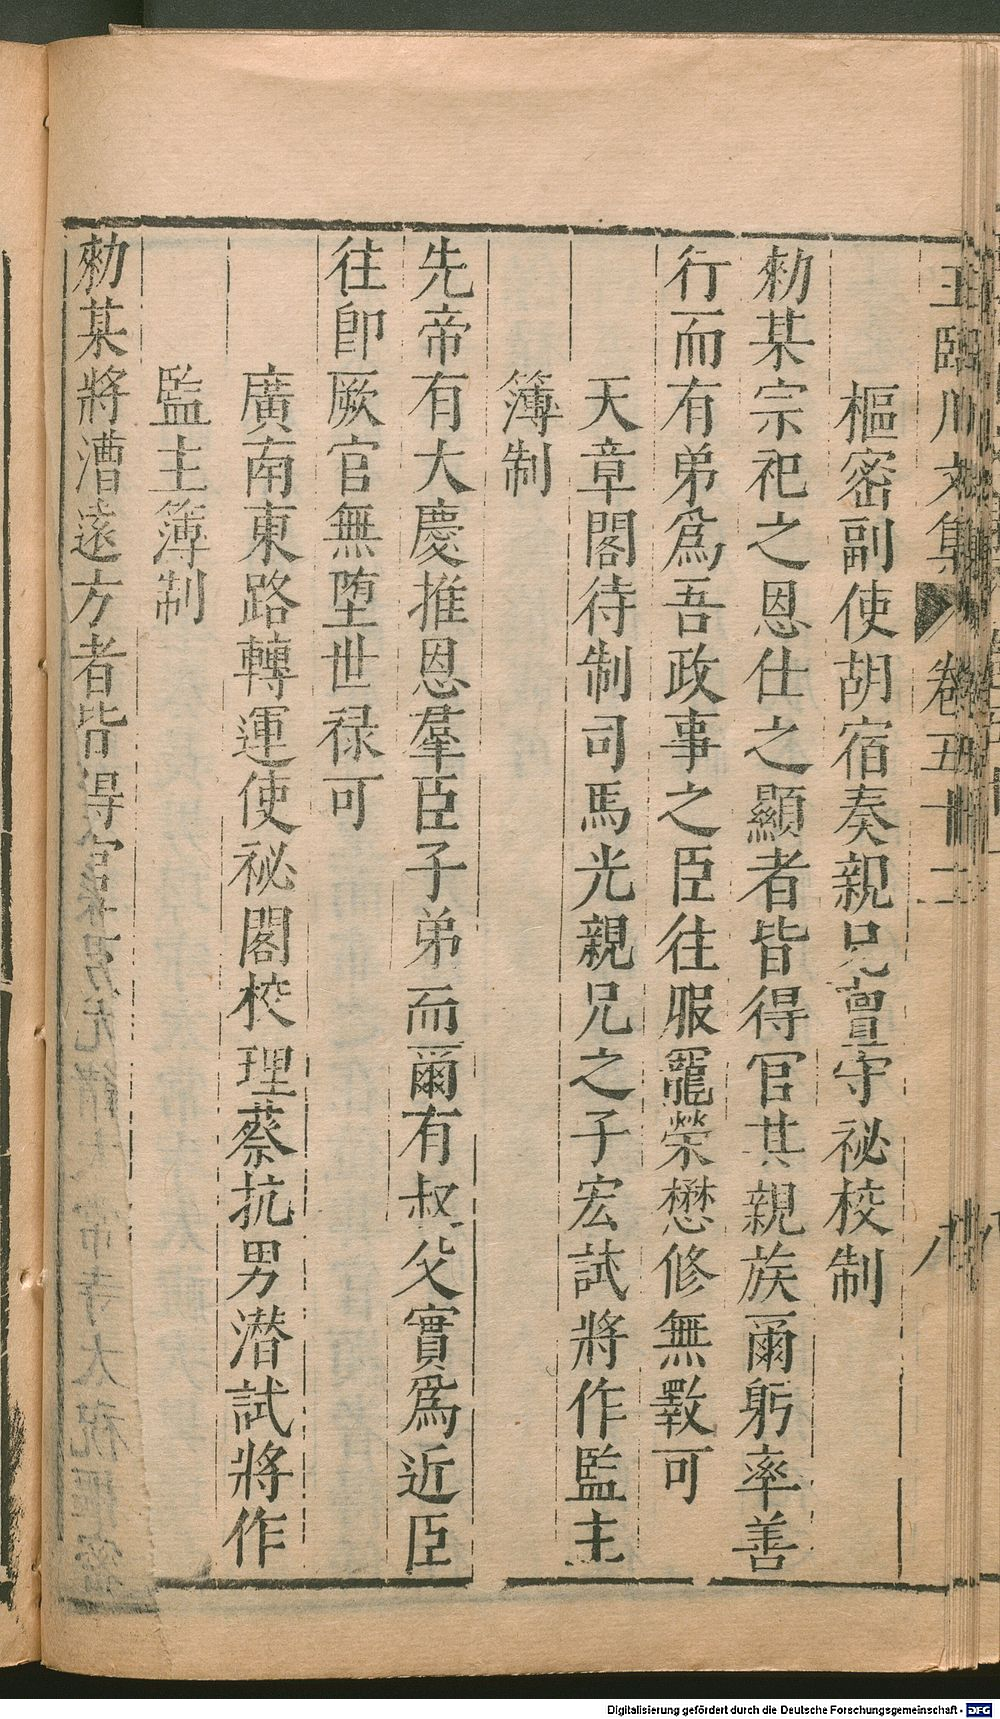 王臨川文集 卷五十二 八
樞密副使胡宿奏親兄亶守祕校制
勑某宗祀之恩仕之顯者皆得官其親族爾躬率善
行而有弟爲吾政事之臣往服寵榮懋修無斁可
天章閣待制司馬光親兄之子宏試將作監主
簿制
先帝有大慶推恩羣臣子弟而爾有叔父實爲近臣
往卽厥官無墮世禄可
廣南東路轉運使祕閣校理蔡抗男潜試將作
監主簿制
勑某將漕遠方者皆得官
Digitalisierung gefördert durch die Deutsche Forschungsgemeinschaft - DFG